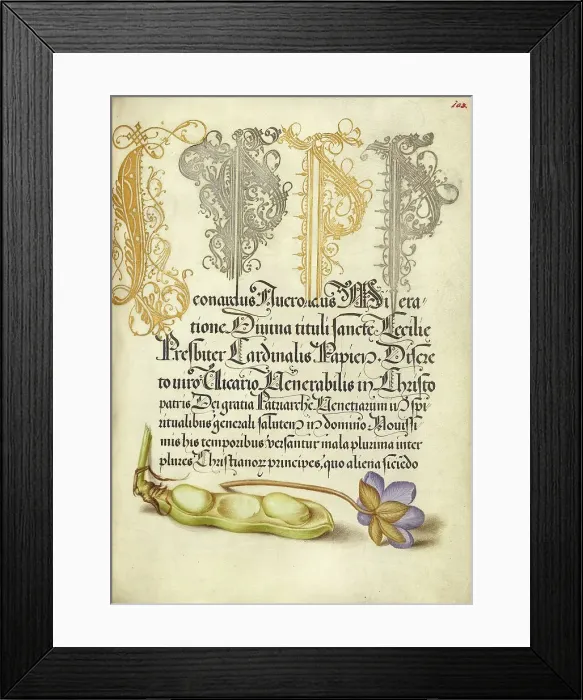 102.
P P P
eonardus Flucronicus Misera⸗
tione Divina tituli sancte Cecilie
Presbiter Cardinalis Papien. Discre
to viro Vicario Venerabilis in Christo
patris Dei gratia Patriarche Venetiarum in spi
ritualibus generali salutem in domino. Novissi
mis his temporibus versantur mala plurima inter
plures Christianor principes, quo aliena siciedo